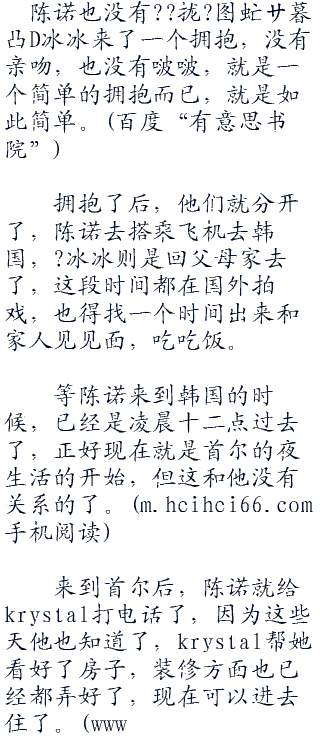 陈诺也没有??拢?图虻ザ暮
凸D冰冰来了一个拥抱，没有
亲吻，也没有啵啵，就是一
个简单的拥抱而已，就是如
此简单。(百度“有意思书
院”)
拥抱了后，他们就分开
了，陈诺去搭乘飞机去韩
国，?冰冰则是回父母家去
了，这段时间都在国外拍
戏，也得找一个时间出来和
家人见见面，吃吃饭。
等陈诺来到韩国的时
候，已经是凌晨十二点过去
了，正好现在就是首尔的夜
生活的开始，但这和他没有
关系的了。(m.hcihci66.com
手机阅读)
来到首尔后，陈诺就给
krystal打电话了，因为这些
天他也知道了，krystal帮她
看好了房子，装修方面也已
经都弄好了，现在可以进去
住了。(www